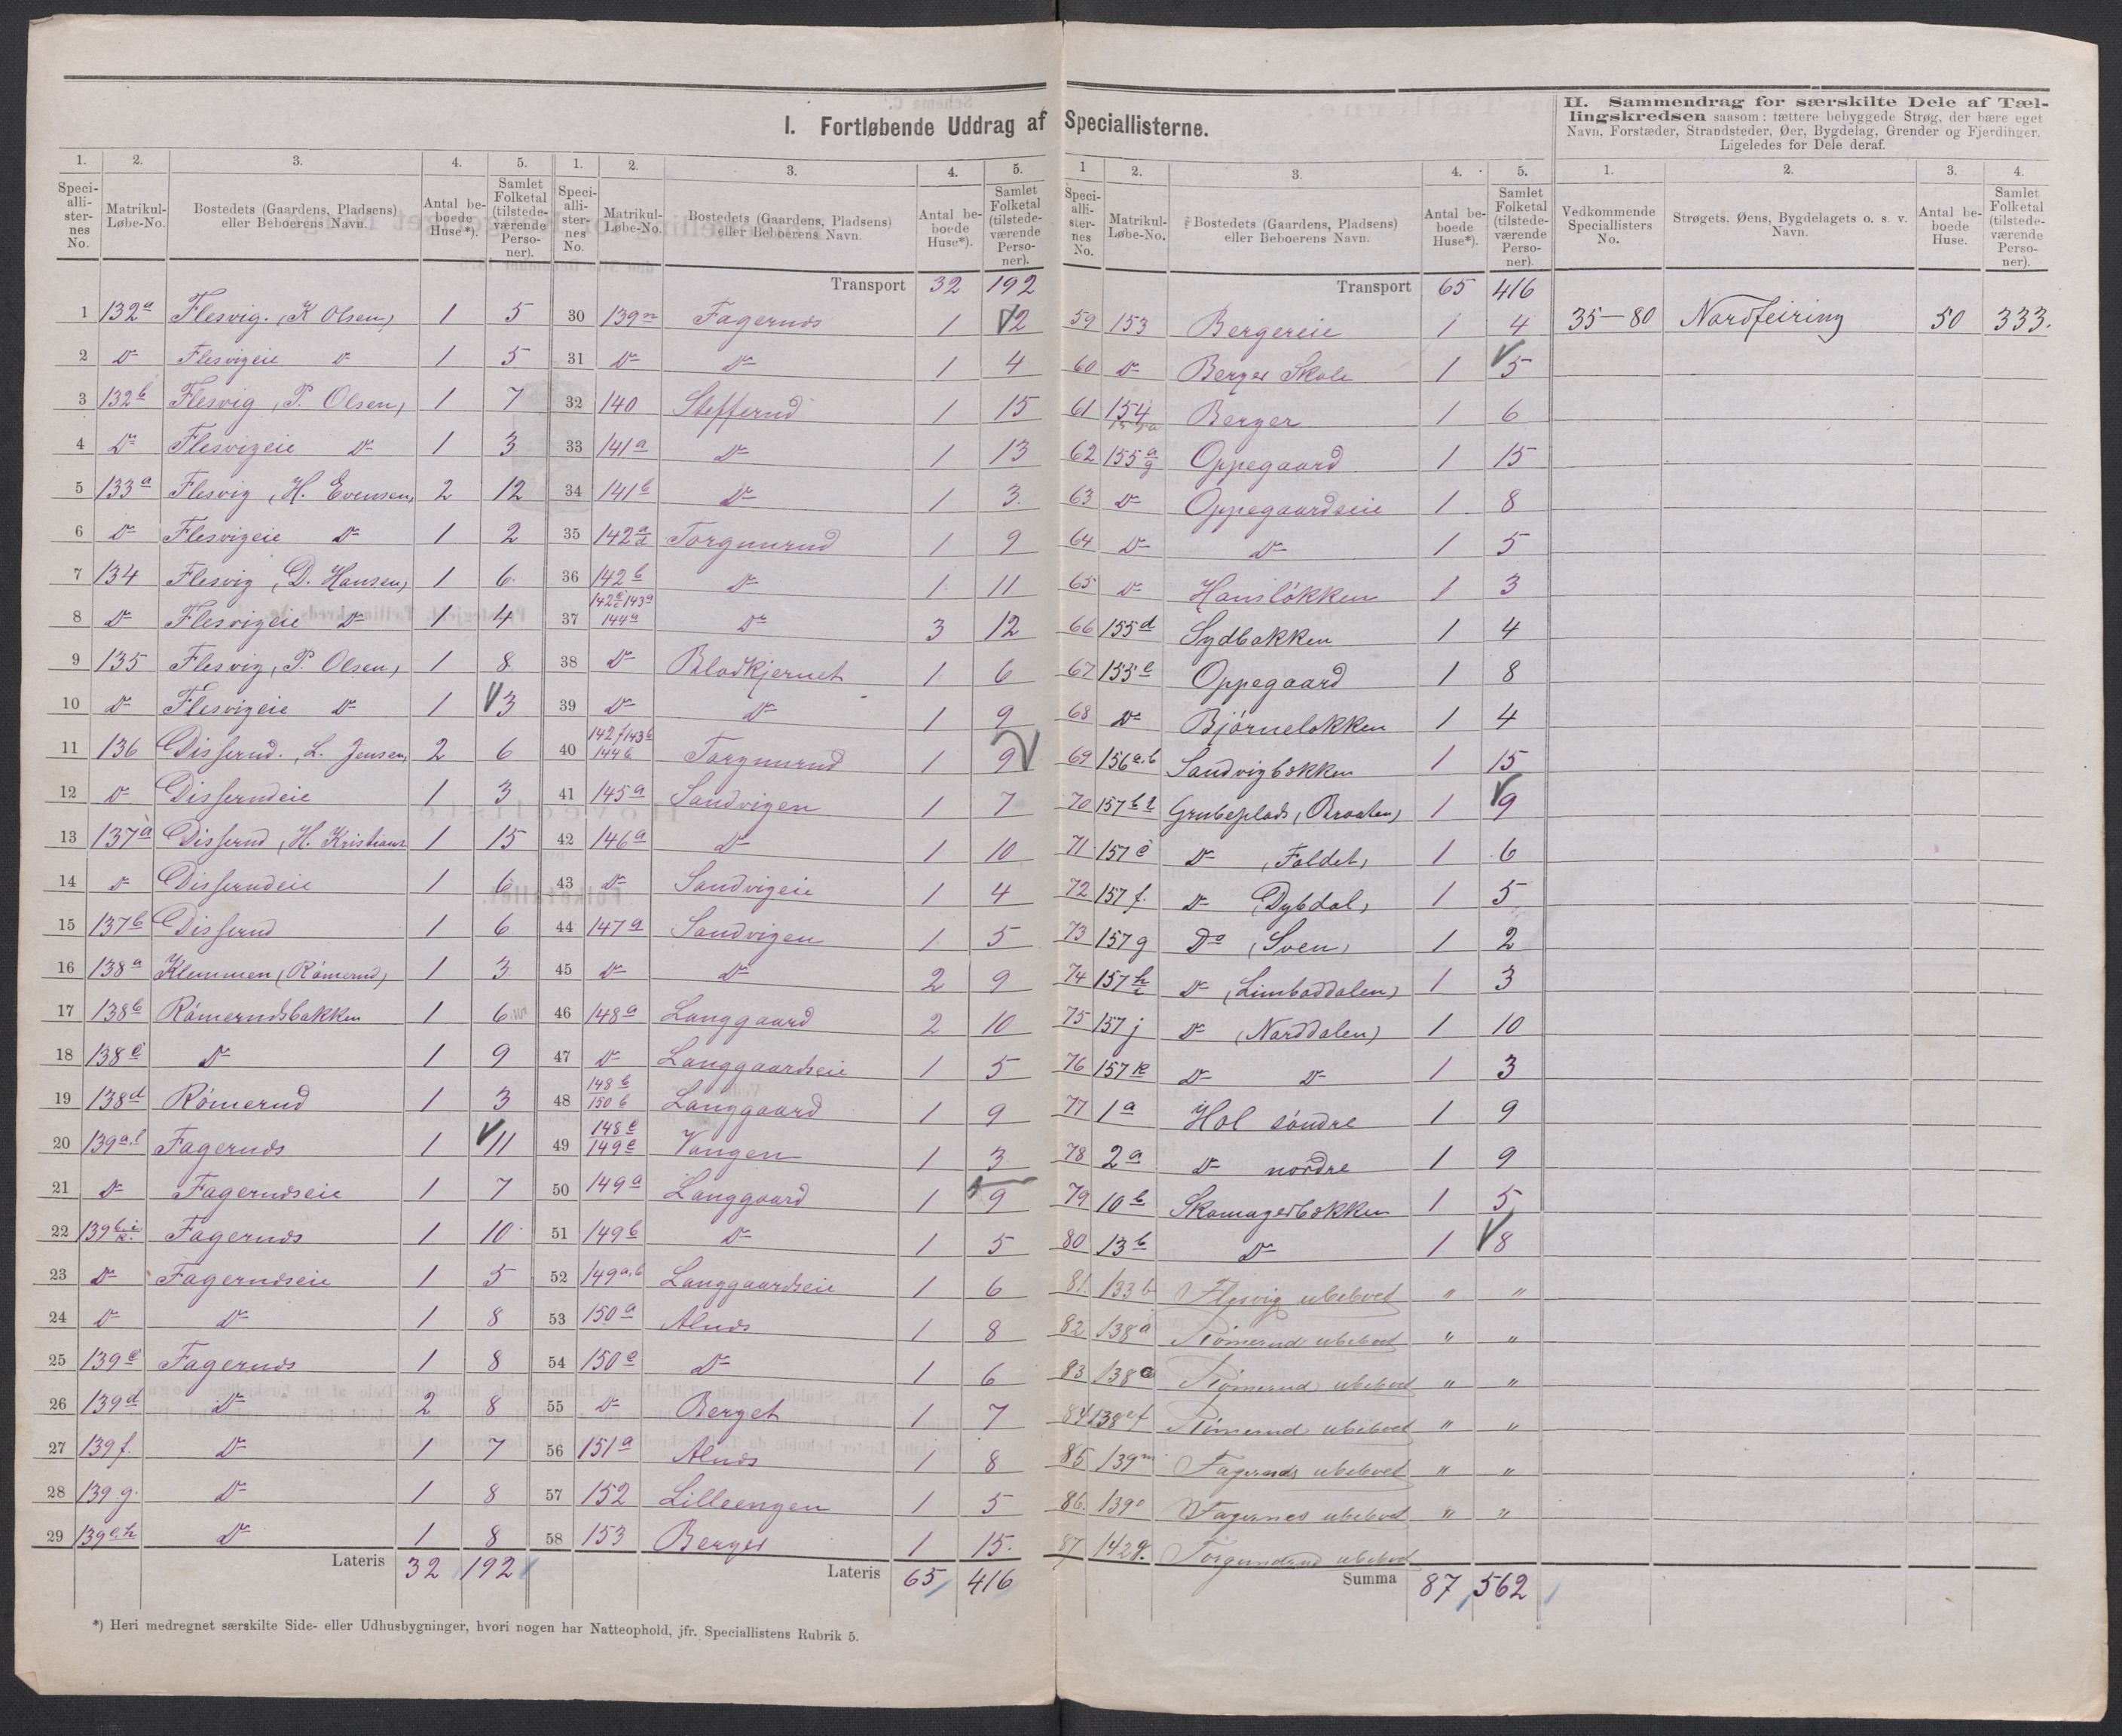 I. Fortløbende Uddrag af Speciallisterne.
1. 2. 3. 4. 5.
Speciallisternes No. Matrikul-Løbe-No. Bostedets (Gaardens, Pladsens) eller Beboerens Navn. Antal beboede Huse*). Samlet Folketal (tilstedeværende Personer).
1 132a Flesvig. (K Olsen) 1 5
2 Do Flesvigeie Do 1 5
3 132b Flesvig (P. Olsen) 1 7
4 Do Flesvigeie Do 1 3
5 133a Flesvig (H. Evensen) 2 12
6 Do Flesvigeie Do 1 2
7 134 Flesvig (D. Hansen) 1 6
8 Do Flesvigeie Do 1 4
9 135 Flesvig (P. Olsen) 1 8
10 Do Flesvigeie Do 1 3
11 136 Disserud. (L. Jensen) 2 6
12 Do Disserudeie 1 3
13 137a Disserud (H. Kristians 1 15
14 Do Disserudeie 1 6
15 137b Disserud 1 6
16 138a Klemmen (Römerud) 1 3
17 138b Römerudsbakken 1 6
18 138c Do 1 9
19 138d Römerud 1 3
20 139a,b Fagernds 1 11
21 Do Fagerudseie 1 7
22 139 Fageruds 1 10
23 Do Fagerudseie 1 5
24 Do Do 1 8
25 139c Fageruds 1 8
26 139d Do 2 8
27 139f. Do 1 7
28 139g. Do 1 8
29 139e.h Do 1 8
Lateris 32 192
1. 2. 3. 4. 5.
Speciallisternes No. Matrikul-Løbe-No. Bostedets (Gaardens, Pladsens) eller Beboerens Navn. Antal beboede Huse*). Samlet Folketal (tilstedeværende Personer).
Transport 32 192
30 139n Fageruds 1 2
31 Do Do 1 4
32 140 Stefferud 1 15
33 141a Do 1 13
34 141b Do 1 3.
35 142a/d Torgunrud 1 9
36 142b Do 1 11
37 142c 143a 144a Do 3 12
38 Do Blodkjernet 1 6
39 Do Do 1 9
40 142f 143b 144b Torgunrud 1 9
41 145a Sandvigen 1 7
42 146a Do 1 10
43 Do Sandvigeie 1 4
44 147a Sandvigen 1 5
45 Do Do 2 9
46 148a Langgaard 2 10
47 Do Langgaardseie 1 5
48 148b 150b Langgaard 1 9
49 148c 149c Vangen 1 3
50 149a Langgaard 1 9
51 149b Do 1 5
52 149a,b Langgaardseie 1 6
53 150a Aluds 1 8
54 150c Do 1 6
55 Do Berget 1 7
56 151a Aluds 1 8
57 152 Lilleengen 1 5
58 153 Berger 1 15.
Lateris 65 416
1 2. 3. 4. 5.
Speciallisternes No. Matrikul-Løbe-No. Bostedets (Gaardens, Pladsens) eller Beboerens Navn. Antal beboede Huse*). Samlet Folketal (tilstedeværende Personer).
Transport 65 416
59 153 Bergereie 1 4
60 Do Berger Skole 1 5
61 154 Berger 1 6
62 155a/g Oppegaard 1 15
63 Do Oppegaardseie 1 8
64 Do Do 1 5
65 Do Hanslökken 1 3
66 155d Sydbakken 1 4
67 155e Oppegaard 1 8
68 Do Björnelokken 1 4
69 156a,b Sandvigbakken 1 15
70 157 Grubeplads (Braaten) 1 9
71 157e Do (Faldet) 1 6
72 157f. Do (Dybdal) 1 5
73 157g Do (Sven) 1 2
74 157h/i Do (Limboddalen) 1 3
75 157j Do (Norddalen) 1 10
76 157k Do Do 1 3
77 1a Hol söndre 1 9
78 2a Do nordre 1 9
79 10b Skomagerbakken 1 5
80 13b Do 1 8
81. 133b Flesvig ubeboet " "
82 138a Römerud ubeboet " "
83 138 Römerud ubebod " "
84 138ef Römerud ubeboet " "
85 139m Fageruds ubeboet " "
86. 139o Fagernes ubebod " "
87 142g. Torgundrud ubebod
Summa 87 562
II. Sammendrag for særskilte Dele af Tællingskredsen saasom: tættere bebyggede Strøg, der bære eget Navn, Forstæder, Strandsteder, Øer, Bygdelag, Grender og Fjerdinger. Ligeledes for Dele deraf.
1. 2. 3. 4.
Vedkommende Speciallisters No. Strøgets, Øens, Bygdelagets o. s. v. Navn. Antal beboede Huse. Samlet Folketal (tilstedeværende Personer).
35–80 Nordfeiring 50 333.
*) Heri medregnet særskilte Side- eller Udhusbygninger, hvori nogen har Natteophold, jfr. Speciallistens Rubrik 5.